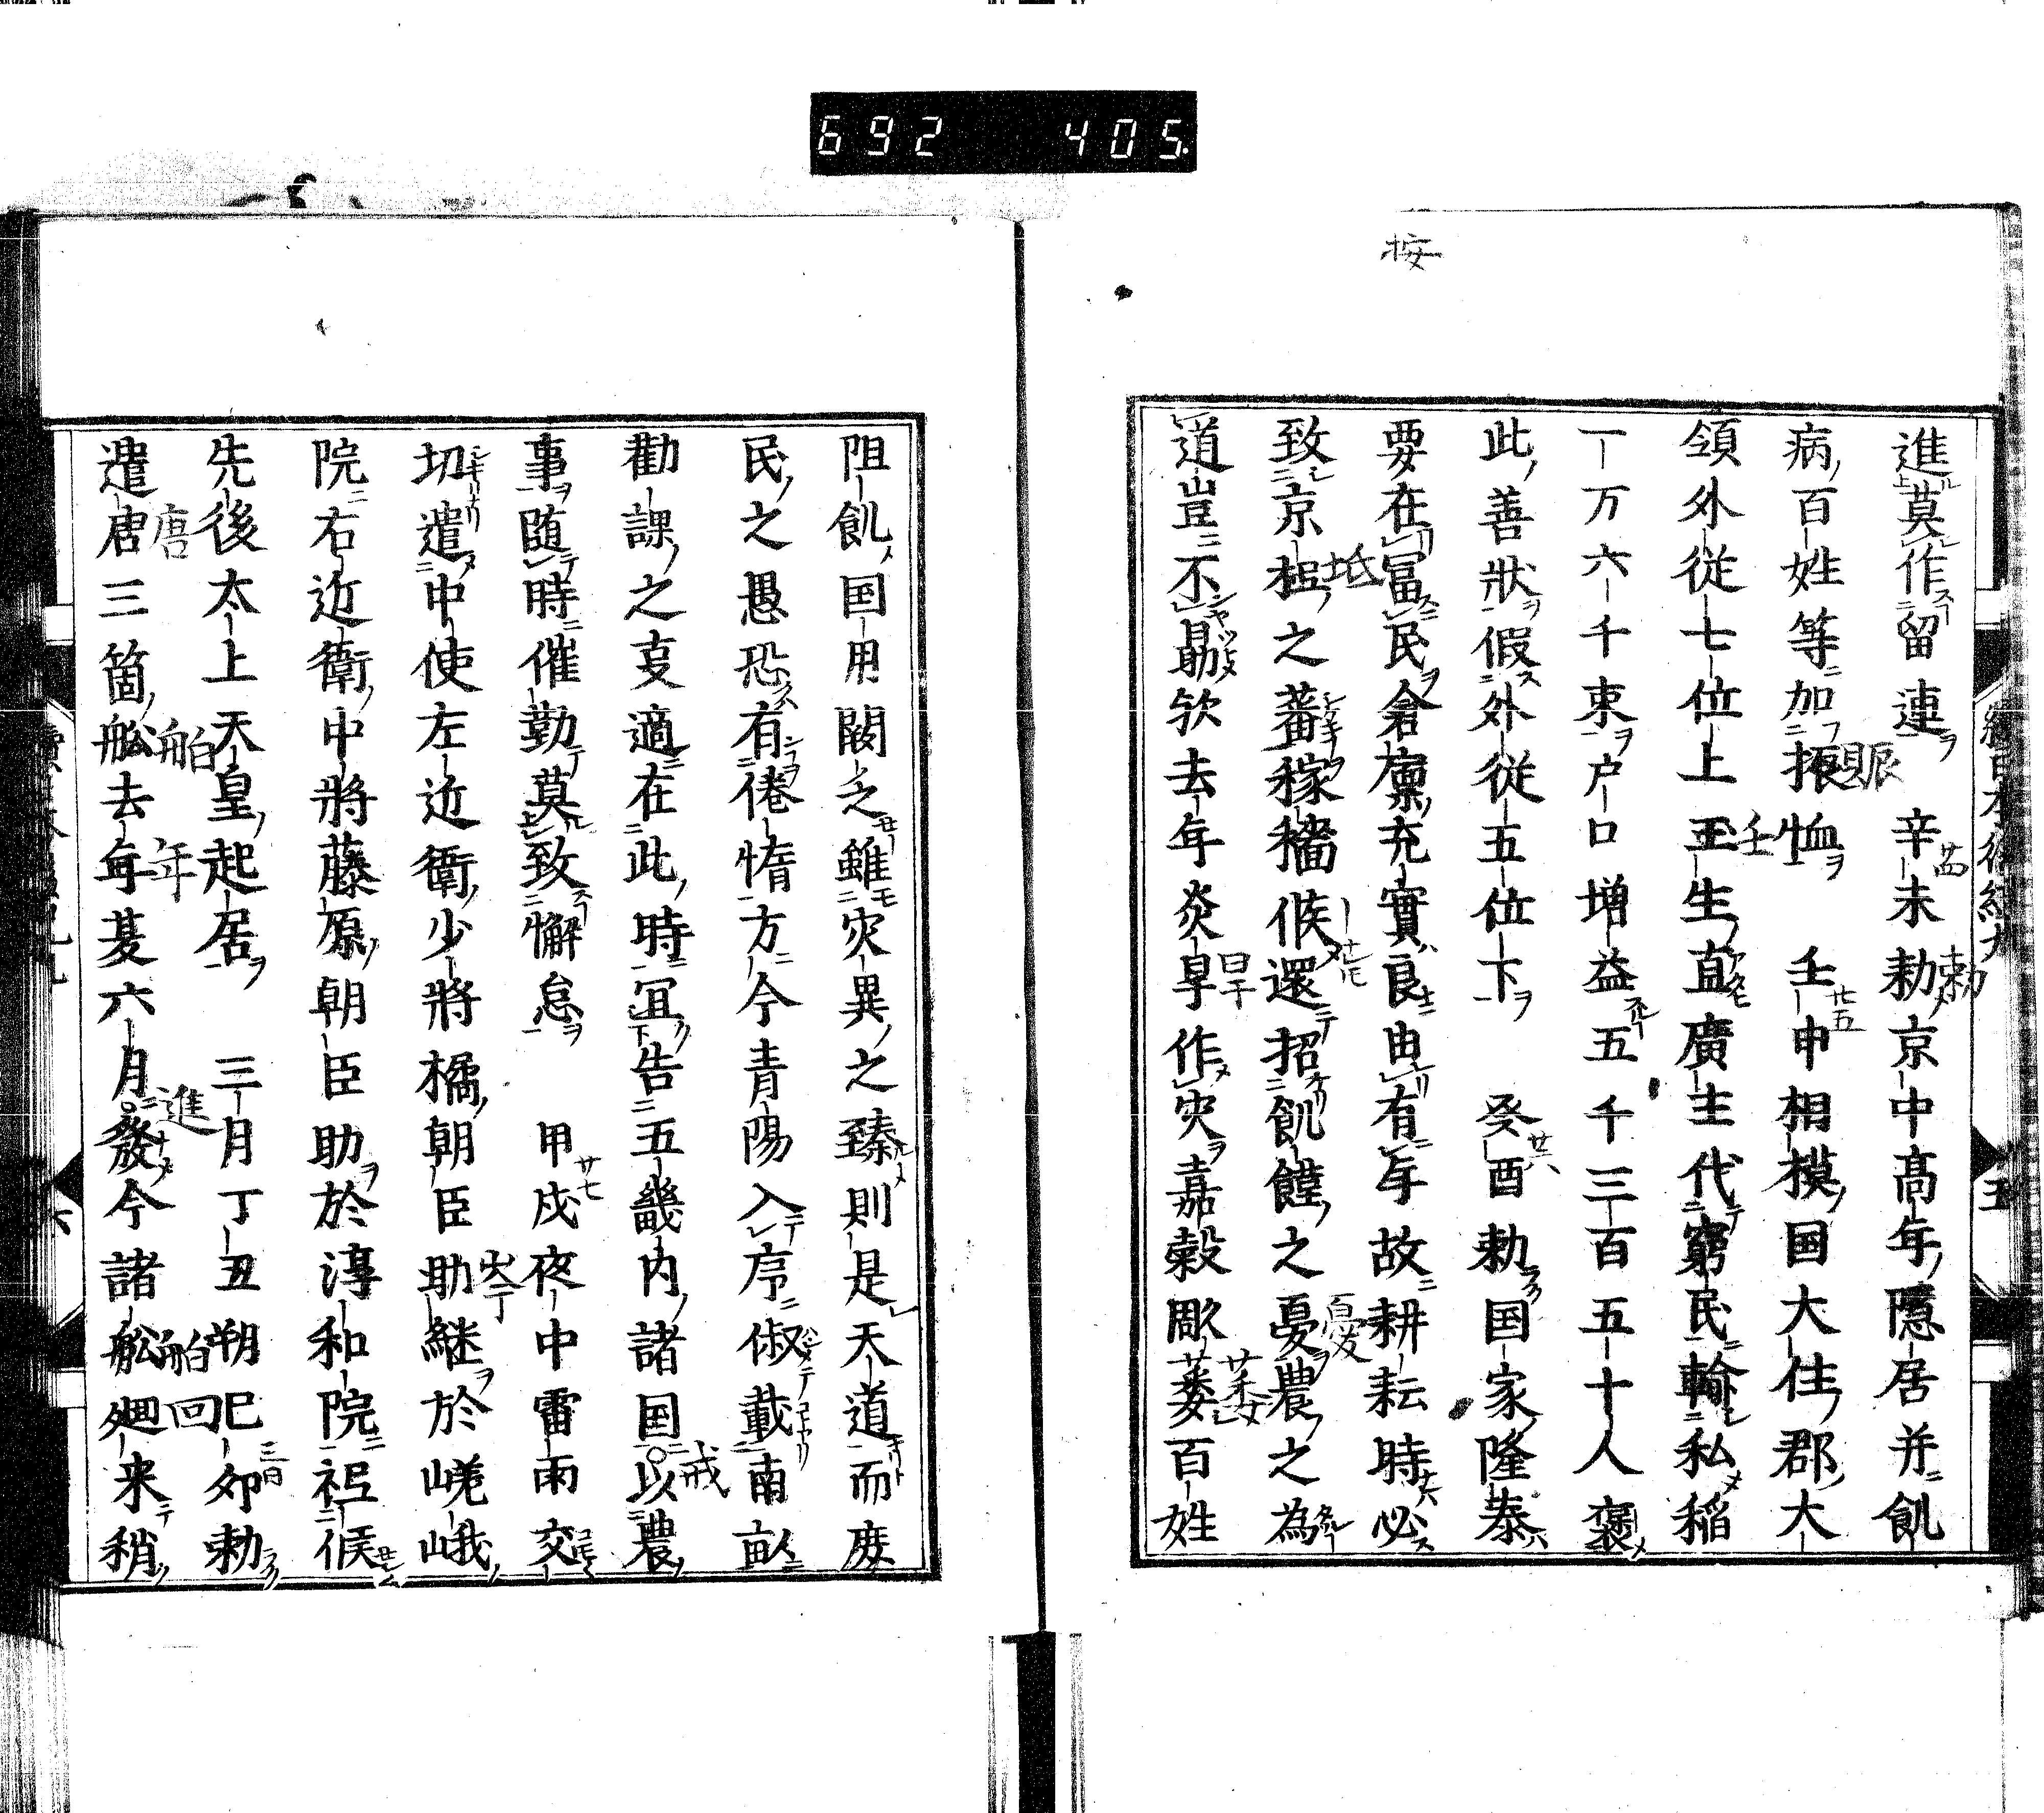 692 405
按
進莫作留連 辛未勅京中高年隠居并飢
病百姓等加振恤 壬申相摸国大住郡大
領外従七位上王生直廣主代窮民輸私稲
一万六千束戸口増益五千三百五十人褒
此善状假外従五位下 癸酉勅国家隆泰
要在冨民倉廩充實良由有年故耕耘時必
致京坻之蓄稼穡候還招飢饉之憂農之為
道豈不勗欤去年炎旱作灾嘉穀彫萎百姓
阻飢国用闕乏雖灾異之臻則是天道而庶
民之愚恐有倦惰方今青陽入序俶載南畝
勸課之支適在此時冝告五畿内諸国以農
事随時催勤莫致懈怠 甲戌夜中雷雨交
切遣中使左近衛少将橘朝臣助継於嵯峨
院右近衛中将藤原朝臣助於淳和院祗候
先後太上天皇起居 三月丁丑朔己卯勅
遣唐三箇舩去年夏六月發今諸舩廻来稍